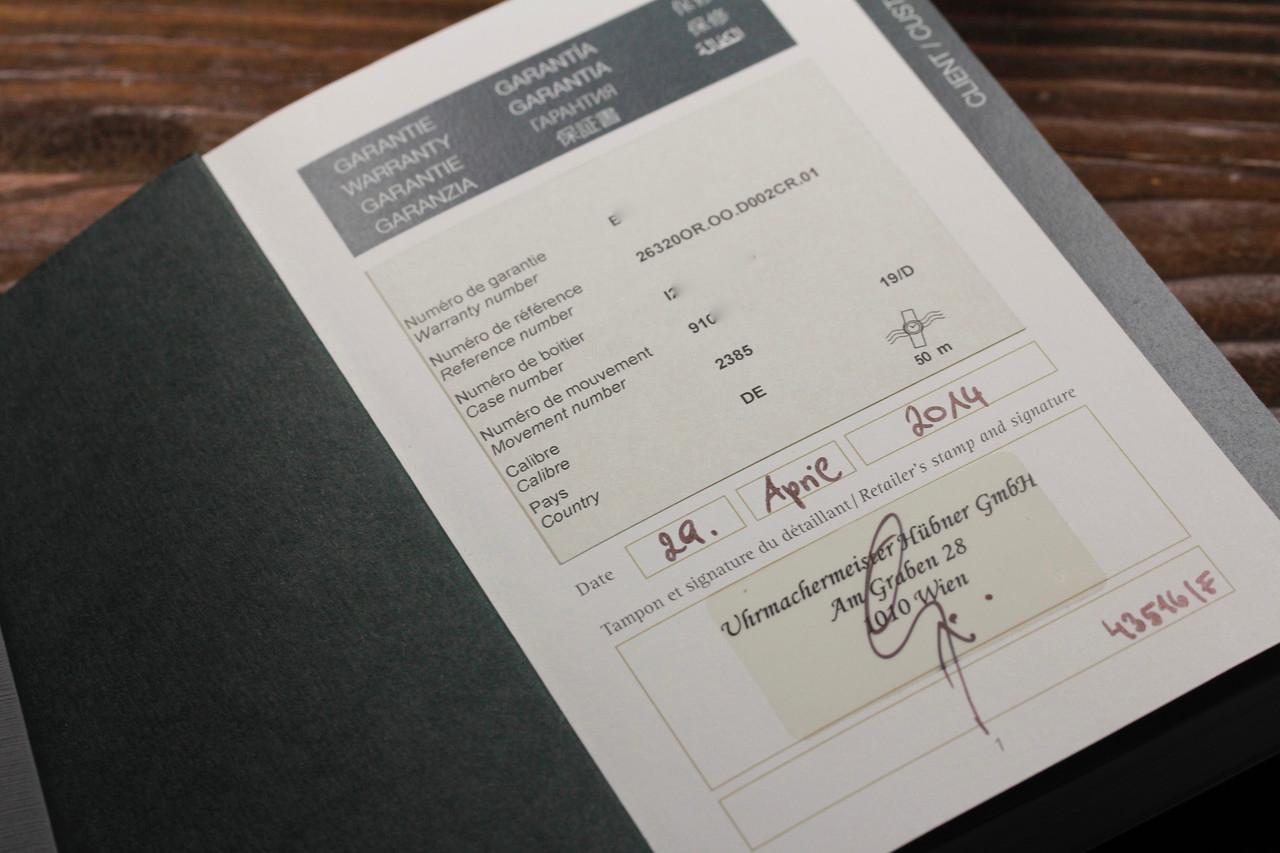 GARANTIE
WARRANTY
GARANTIE
GARANZIA
GARANTÍA
GARANTIA
ГАРАНТИЯ
保証書
保修
CLIENT / CUST
Numéro de garantie
Warranty number
E
Numéro de référence
Reference number
26320OR.OO.D002CR.01
Numéro de boitier
Case number
I
Numéro de mouvement
Movement number
910
19/D
Calibre
Calibre
2385
Pays
Country
DE
50 m
Date
29. April 2014
Tampon et signature du détaillant / Retailer's stamp and signature
Uhrmachermeister Hübner GmbH
Am Graben 28
1010 Wien
43516/F
1